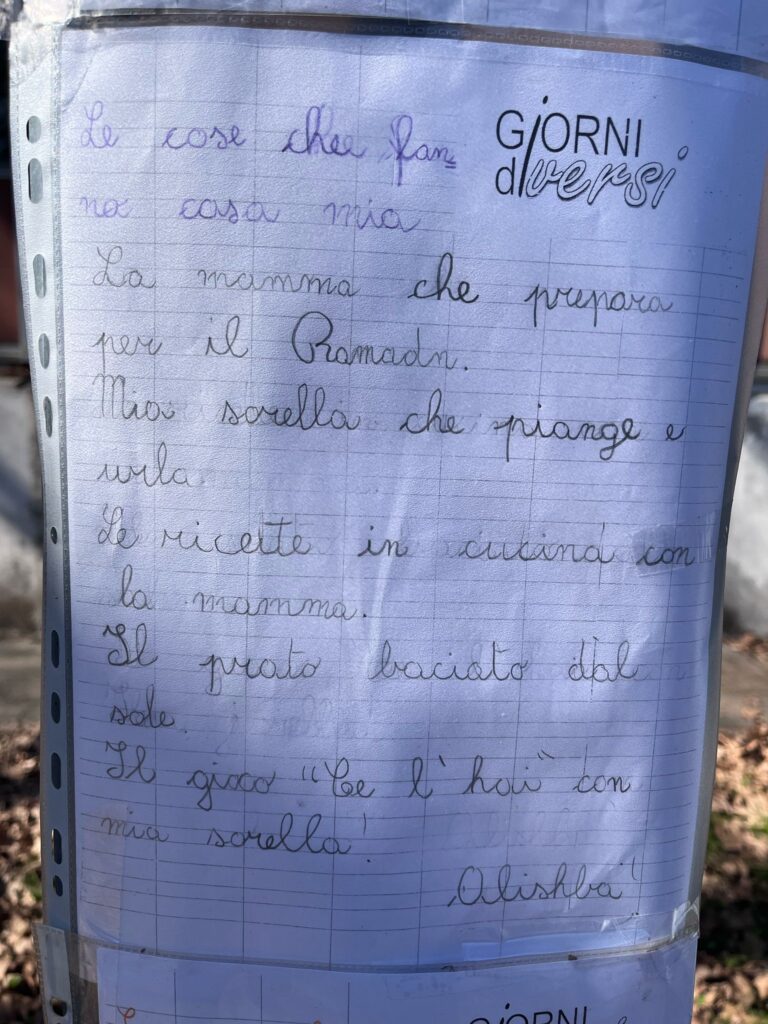 Le cose chee fan=
GiORNI
diversi
no casa mia
La mamma che prepara
per il Ramadn.
Mia sorella che piange e
urla
Le ricette in cucina con
la mamma.
Il prato baciato dal
sole.
Il gioco "Ce l'hai" con
mia sorella!
Alishba
GiORNI